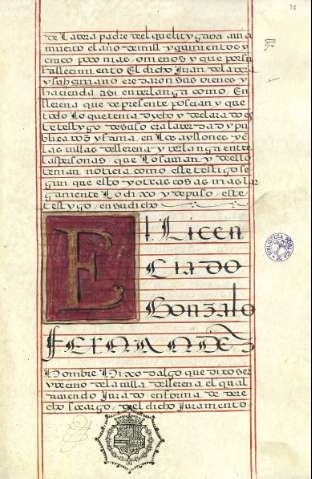 de Lara padre del que litygava avia
muerto el año de mill y quinientos y
cinco poco mas o menos y que por su
fallecimiento El dicho Juan de lara
y sus hermano eredaron sus vienes y
hacienda asi en verlanga como, En
llerena que de presente poseian y que
todo Lo que tenia dycho y declarado es
te testygo de suso era la verdad y pu
blica voz y fama, En Los ayllones y e
las villas de llerena y verlanga entre
las personas que Lo savian y dello
tenian noticia como este testigo se
gun que esto y otras cosas mas lar
gamente Lo dixo y depuso este
testygo, en su dicho
El Licen
ciado
Gonzalo
Fernandez
Hombre Hijo dalgo que dixo ser
vezino de la villa de llerena el qual
aviendo Jurado en forma de dere
cho so cargo, del dicho Juramento